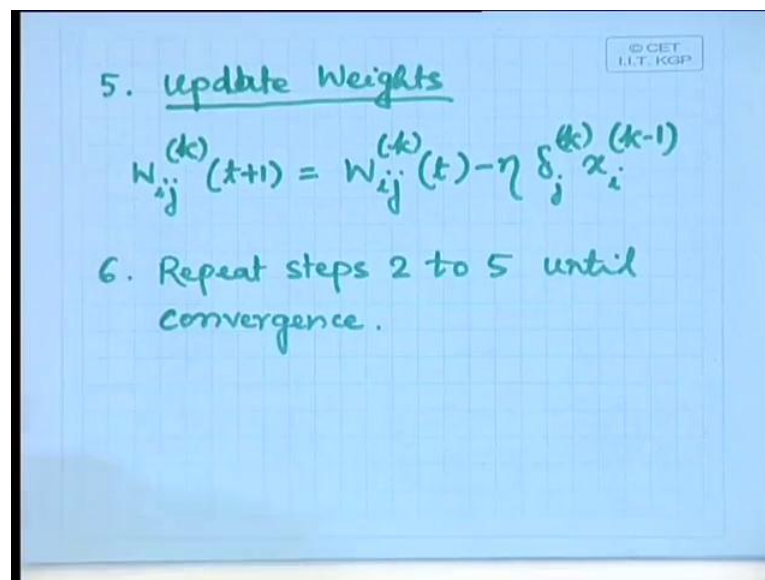 © CET
I.I.T. KGP
5. Update Weights
W_{ij}^{(k)}(t+1) = W_{ij}^{(k)}(t) - η δ_j^{(k)} x_i^{(k-1)}
6. Repeat steps 2 to 5 until
convergence.